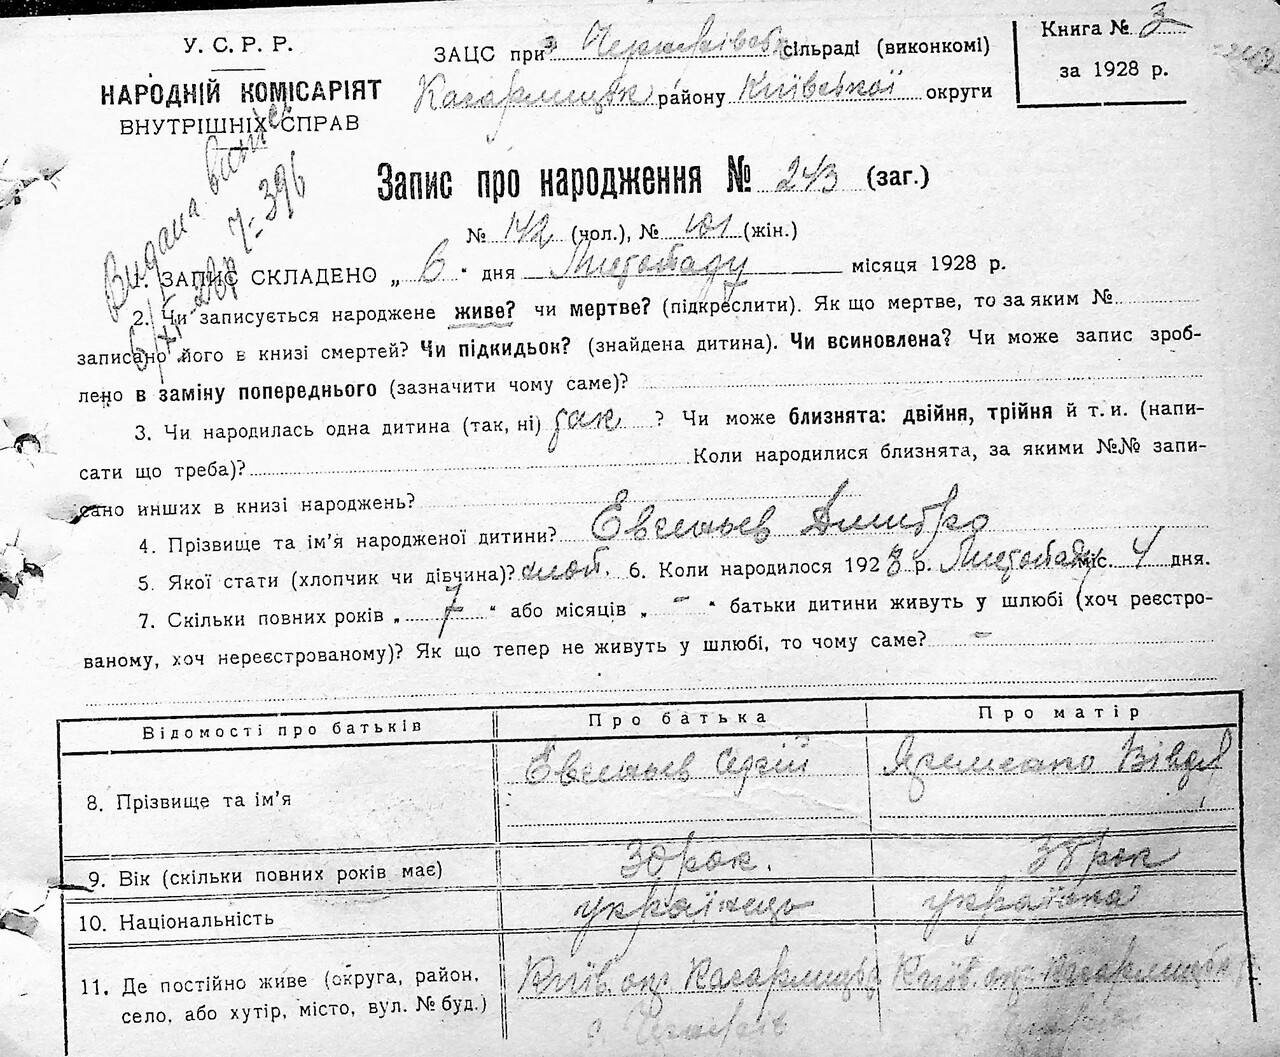 У. С. Р. Р.
НАРОДНІЙ КОМІСАРІЯТ
ВНУТРІШНІХ СПРАВ
ЗАЦС при сільраді (виконкомі)
Кагарлицьк. району Київської округи
Книга № 3
за 1928 р.
Видана
Запис про народження № 243 (заг.)
№ 142 (чол.), № 101 (жін.)
1. ЗАПИС СКЛАДЕНО „ 6 “ дня Листопаду місяця 1928 р.
2. Чи записується народжене живе? чи мертве? (підкреслити). Як що мертве, то за яким №
записано його в книзі смертей? Чи підкидьок? (знайдена дитина). Чи всиновлена? Чи може запис зроб-
лено в заміну попереднього (зазначити чому саме)?
3. Чи народилась одна дитина (так, ні) так ? Чи може близнята: двійня, трійня й т. и. (напи-
сати що треба)? Коли народилися близнята, за якими №№ запи-
сано инших в книзі народжень?
4. Прізвище та ім’я народженої дитини? Евсеньев Дмитро
5. Якої стати (хлопчик чи дівчина)? хлоп. 6. Коли народилося 1928 р. Листопаду міс. 4 дня.
7. Скільки повних років „ 7 “ або місяців „ - “ батьки дитини живуть у шлюбі (хоч реєстро-
ваному, хоч нереєстрованому)? Як що тепер не живуть у шлюбі, то чому саме? -
Відомості про батьків Про батька Про матір
8. Прізвище та ім’я Евсеньев Сергій
9. Вік (скільки повних років має) 30 рок. рок
10. Національність українець українка
11. Де постійно живе (округа, район, Київ. окр. Кагарлицьк Київ. окр. Кагарлицьк
село, або хутір, місто, вул. № буд.) с.